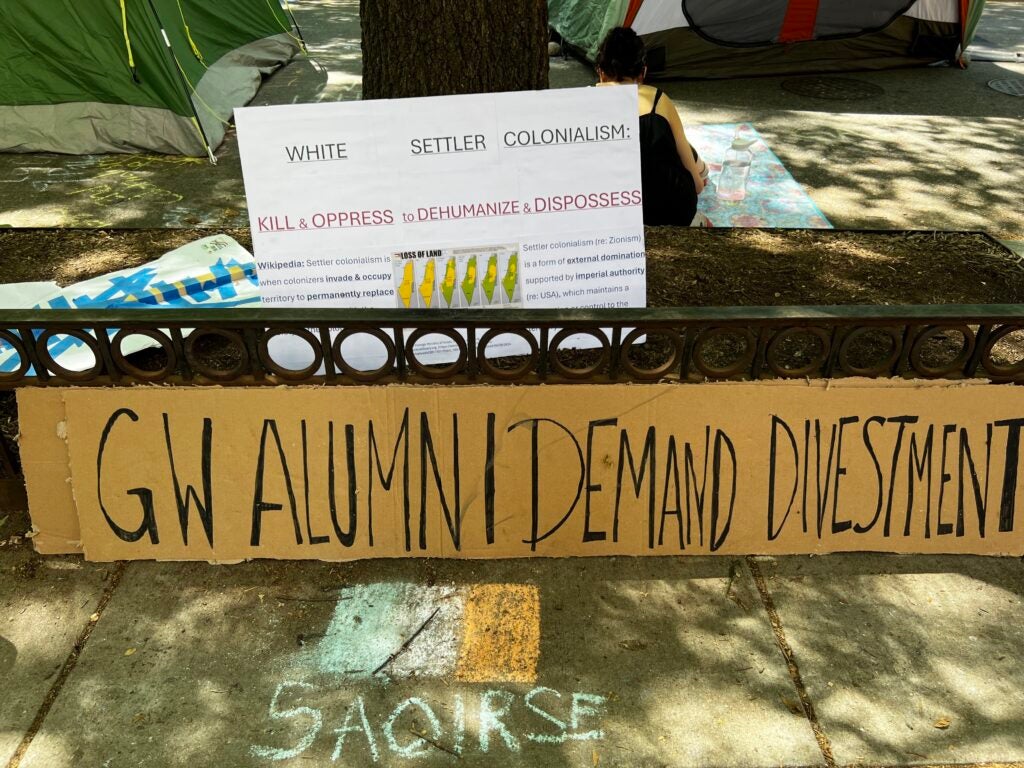 WHITE SETTLER COLONIALISM:
KILL & OPPRESS to DEHUMANIZE & DISPOSSESS
Wikipedia: Settler colonialism is
when colonizers invade & occupy
territory to permanently replace
LOSS OF LAND
Settler colonialism (re: Zionism)
is a form of external domination
supported by imperial authority
(re: USA), which maintains a
control to the
GW ALUMNI DEMAND DIVESTMENT
SAOIRSE